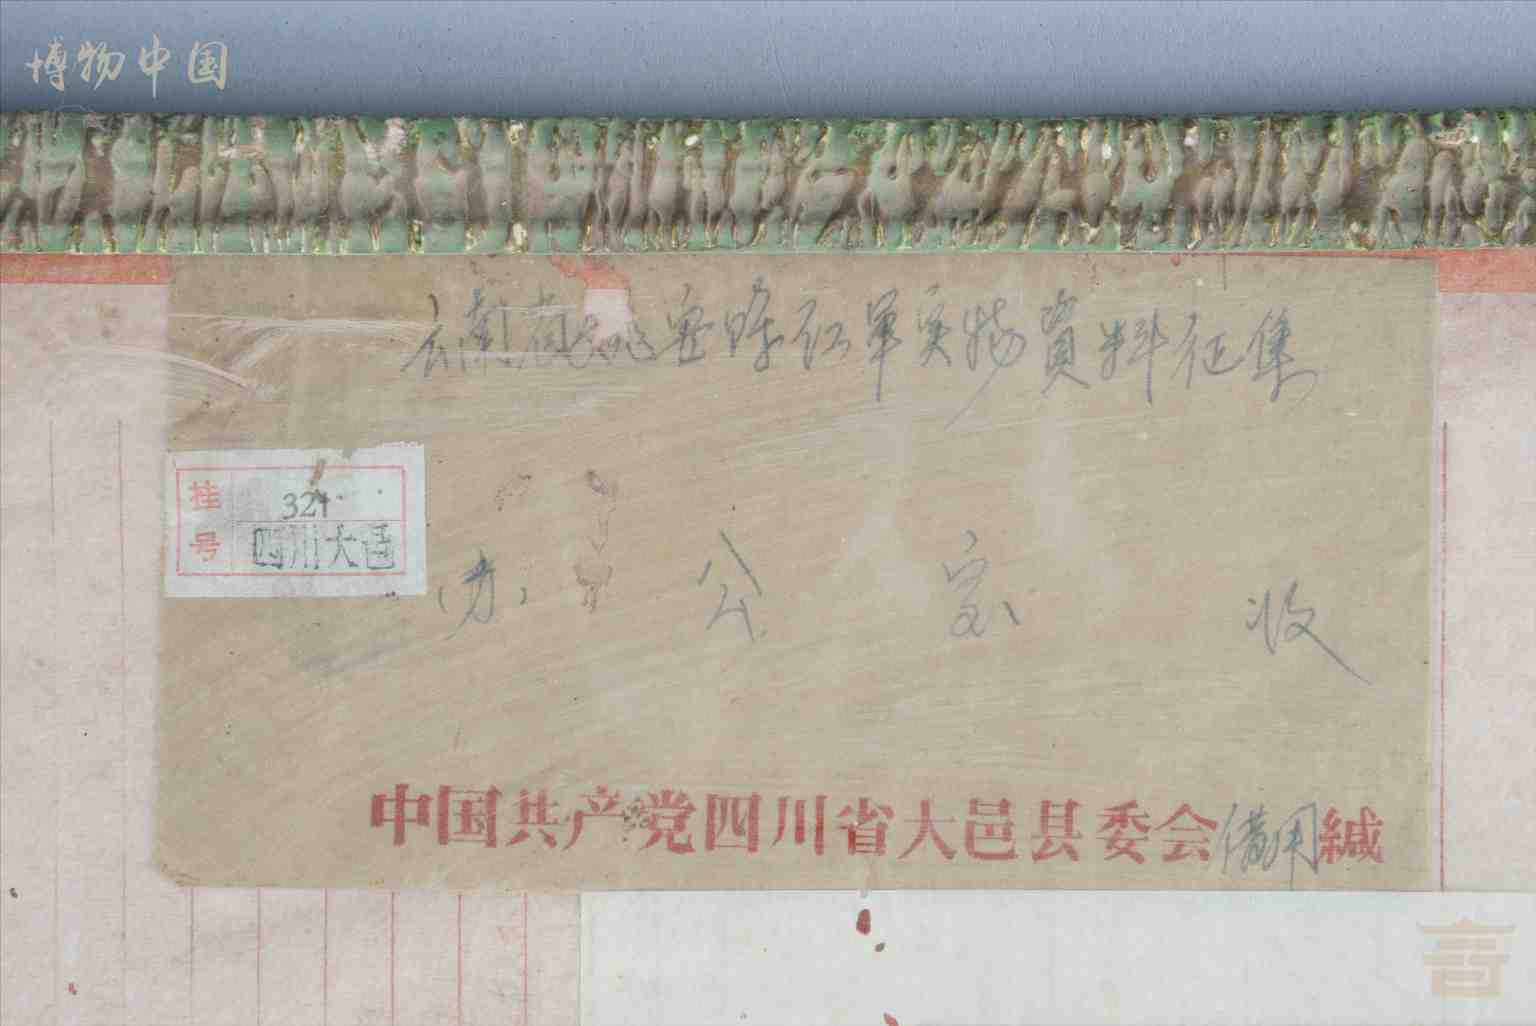 博物中国
云南省姚安县红军实物資料征集
挂号
321
四川大邑
办公室收
中国共产党四川省大邑县委会備用緘